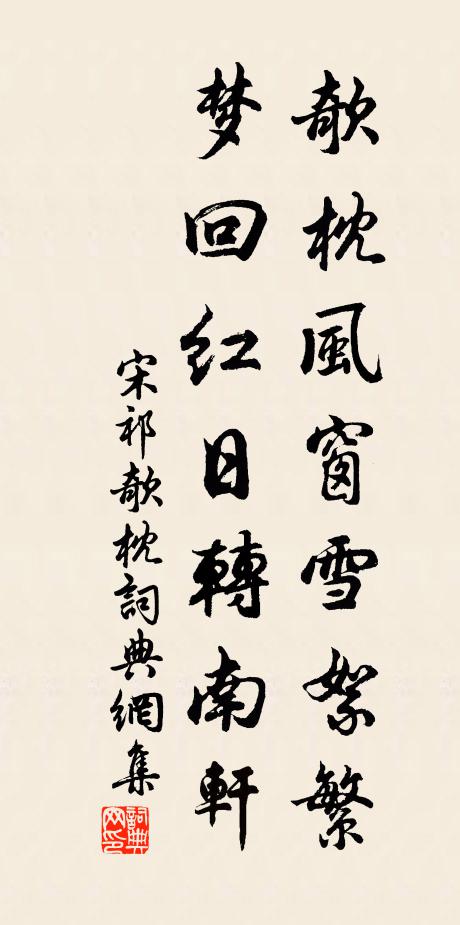 欹枕風窗雪絮繁
梦回红日轉南軒
宋祁欹枕詞典網集
詞典網印